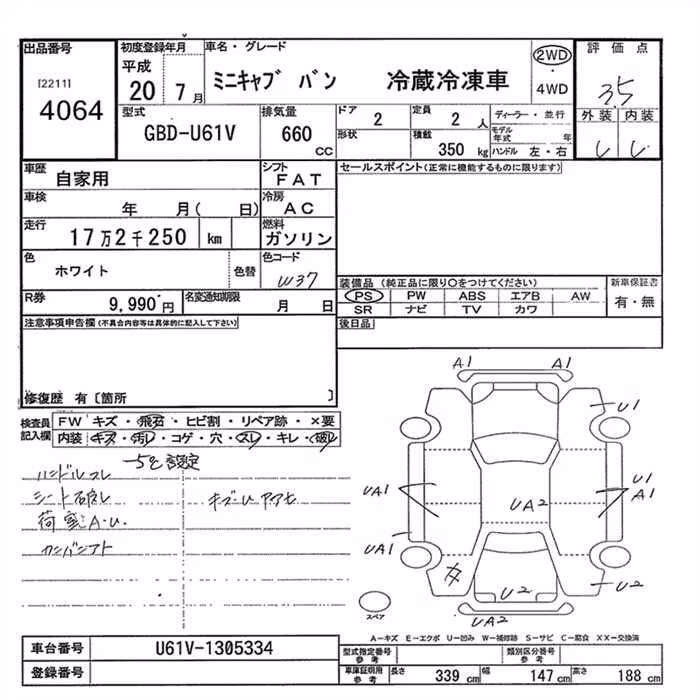 出品番号 初度登録年月 車名・グレード 2WD 評価点
[2211] 平成 ミニキャブ バン 冷蔵冷凍車 ・ 3.5
4064 20 7月 4WD
外装 内装
型式 排気量 ドア 定員 ディーラー・並行
GBD-U61V 660 CC 2 2人
形状 積載 350 kg モデル年式 年
ハンドル 左・右
車歴 自家用 シフト FAT セールスポイント(正常に機能するものに限ります)
車検 年 月( 日) 冷房 AC
走行 17万2千250 km 燃料 ガソリン
色 ホワイト 色替 色コード W37
装備品(純正品に限り○をつけてください) 新車保証書
PS PW ABS エアB AW 有・無
SR ナビ TV カワ
R券 9,990円 名変通知期限 月 日
後日品
注意事項申告欄(不具合内容等は具体的に記入して下さい)
修復歴 有〔箇所 〕
検査員記入欄 FW キズ・飛石・ヒビ割・リペア跡・×要
内装 キズ・汚レ・コゲ・穴・スレ・キレ・破レ
-5℃設定
ハンドルスレ
シート破レ
荷室A・U
A1 A1
U1
UA1 U1
A1
UA2
UA1
U2 U2
UA2
スペア
A-キズ E-エクボ U-凹み W-補修跡 S-サビ C-腐食 XX-交換済
車台番号 U61V-1305334 型式指定番号 参考 類別区分番号 参考
登録番号 車庫証明用 参考 長さ 339 cm 幅 147 cm 高さ 188 cm